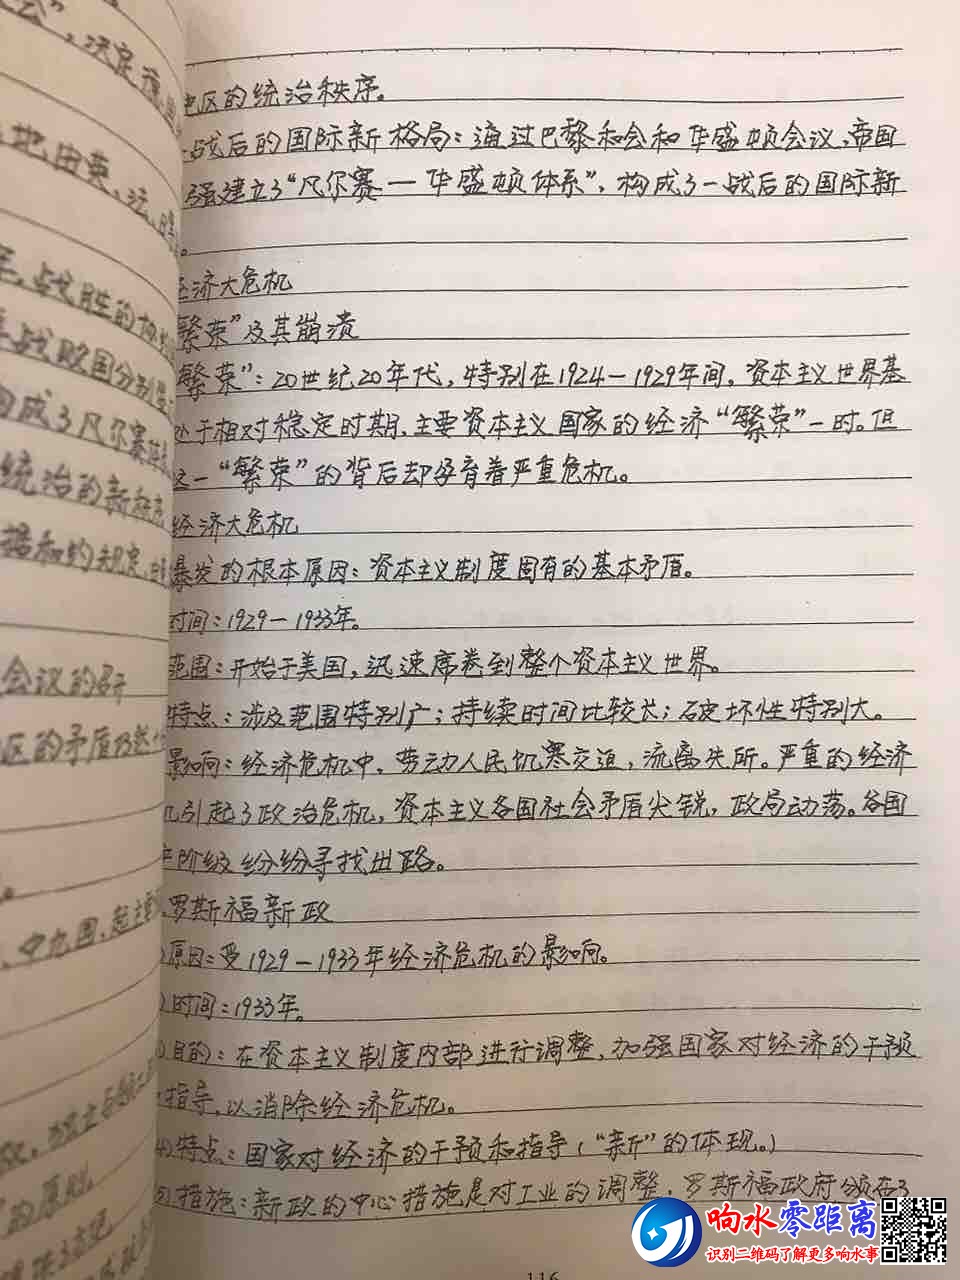 区的统治秩序。
战后的国际新格局：通过巴黎和会和华盛顿会议，帝国
强建立了“凡尔赛—华盛顿体系”，构成了一战后的国际新
经济大危机
繁荣”及其崩溃
繁荣”：20世纪20年代，特别在1924—1929年间，资本主义世界基
处于相对稳定时期，主要资本主义国家的经济“繁荣”一时。但
这一“繁荣”的背后却孕育着严重危机。
经济大危机
暴发的根本原因：资本主义制度固有的基本矛盾。
时间：1929—1933年。
范围：开始于美国，迅速席卷到整个资本主义世界。
特点：涉及范围特别广；持续时间比较长；破坏性特别大。
影响：经济危机中，劳动人民饥寒交迫，流离失所。严重的经济
机引起了政治危机，资本主义各国社会矛盾尖锐，政局动荡。各国
阶级纷纷寻找出路。
罗斯福新政
原因：受1929—1933年经济危机的影响。
时间：1933年。
目的：在资本主义制度内部进行调整，加强国家对经济的干预
指导，以消除经济危机。
(4)特点：国家对经济的干预和指导（“新”的体现。）
措施：新政的中心措施是对工业的调整，罗斯福政府颁布了
116
会”，决定
地，由英、法、
战胜的协约
战败国分别
构成了凡尔赛体系
统治的新秩序
据和约规定，
会议的召开
区的矛盾
九国，起主
的原则。
响水零距离
识别二维码了解更多响水事